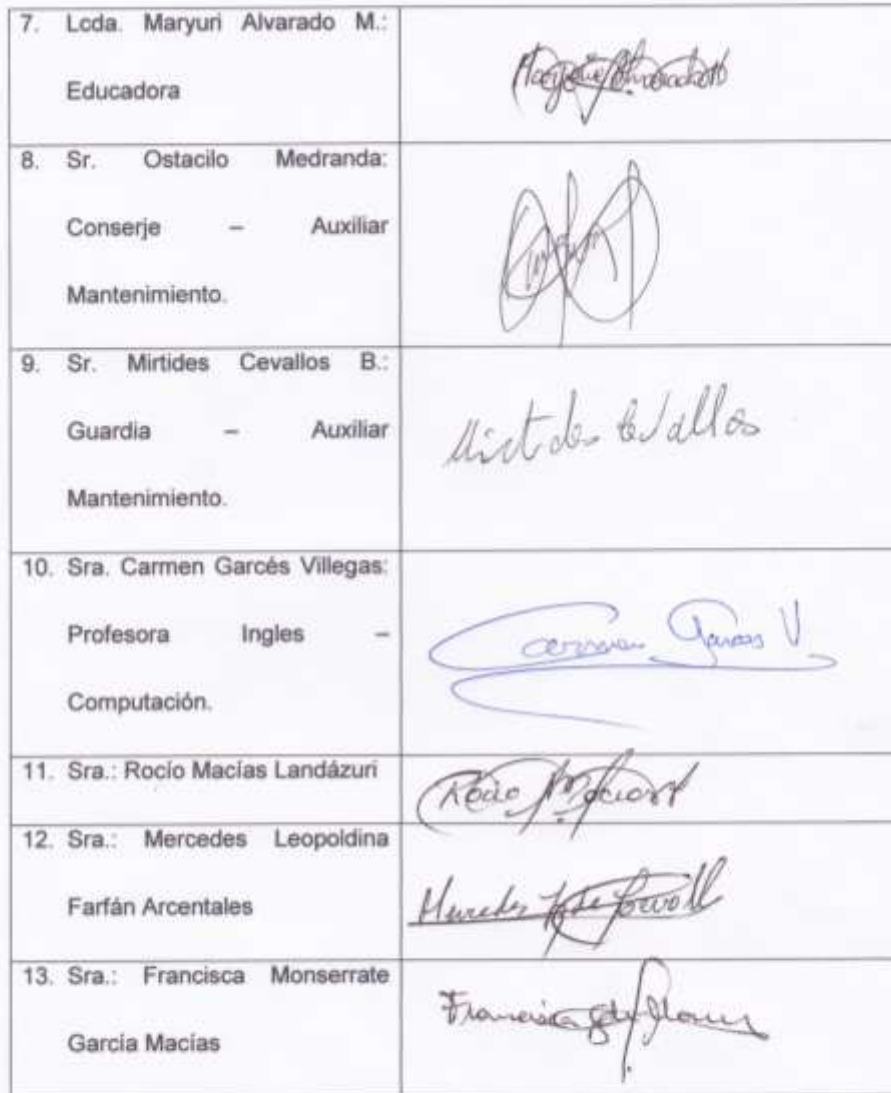 7. Lcda. Maryuri Alvarado M.:
Educadora
8. Sr. Ostacilo Medranda:
Conserje – Auxiliar
Mantenimiento.
9. Sr. Mirtides Cevallos B.:
Guardia – Auxiliar
Mantenimiento.
Mirtides Cevallos
10. Sra. Carmen Garcés Villegas:
Profesora Ingles –
Computación.
Carmen Garces V.
11. Sra.: Rocío Macías Landázuri
Rocio Macias
12. Sra.: Mercedes Leopoldina
Farfán Arcentales
Mercedes
13. Sra.: Francisca Monserrate
García Macías
Francisca